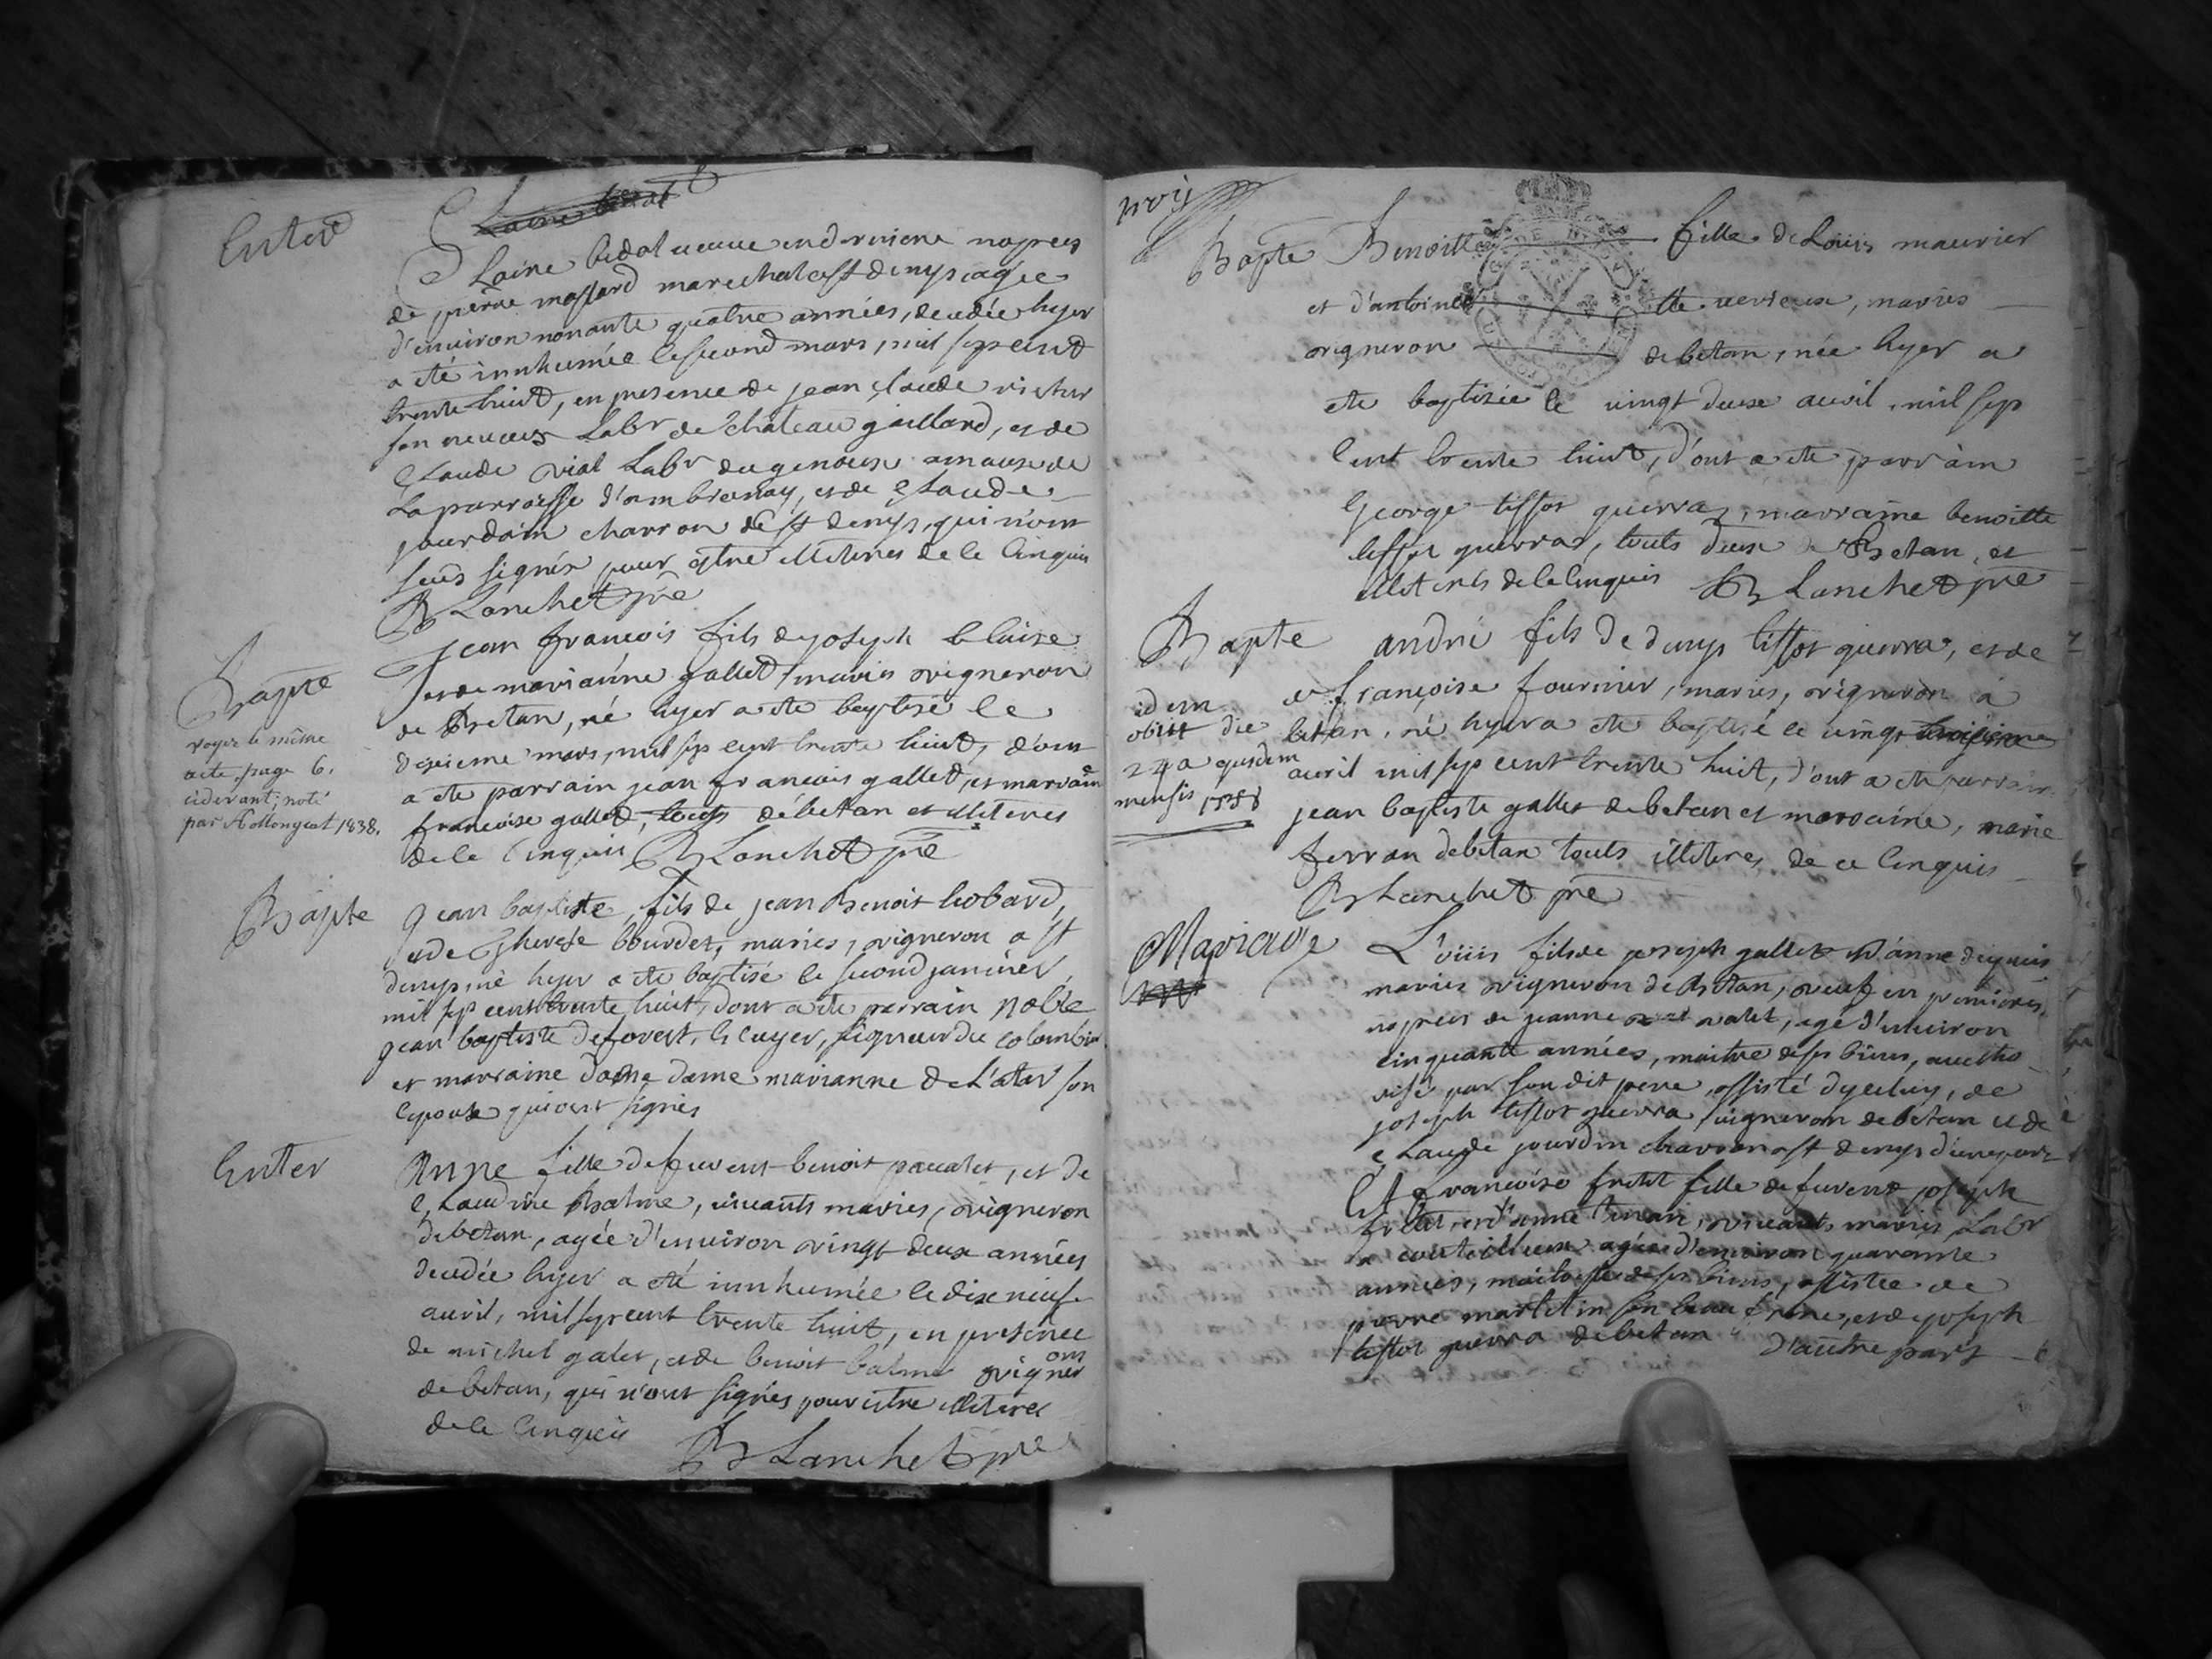 Enter
Claire bedat
Claire bedat veuve en derniere nopces
de pierre massard marechal a st denys agée
d'environ nonante quatre années, decedée hyer
a eté innhumée le second mars, mil sept cent
trente huit, en presence de jean claude
son neveux Labr de chateau gaillard, et de
Claude vial Labr du genoux annexe de
La parroisse d'ambronay, et de Claude
jourdain charron de st denys, qui n'ont
seus signés pour estre illiteres de ce enquis
B Lanchet pre
Bapte
voyez le même
acte page 6.
cidevant; noté
par 1838.
Jean francois fils de joseph blaise
et de marianne gallet maries vigneron
de Betan, né hyer a ete baptisé le
dixieme mars, mil sept cent trente huit, d'ont
a ete parrain jean francois gallet, et marraine
francoise gallet, touts débetan et illiteres
de ce enquis B Lanchet pre
Bapte
Jean baptiste, fils de jean Benoit bobard,
et de Therese bourdet, maries, vigneron a st
denys, né hyer a ete baptisé le second janvier
mil sept cent trente huit, dont a ete parrain noble
jean baptiste deforest, Ecuyer, signeur du colombier
et marraine dame dame marianne de L'atar son
epouse qui ont signés
Enter
Anne fille de fuvent benoit pacalet, et de
Claudine Balme, vivants maries, vigneron
debetan, agée d'environ vingt deux années
decedée hyer a eté innhumée le dix neuf
avril, mil sept cent trente huit, en presence
de michel galet, et de benoit balme vignerons
de betan, qui n'ont signés pour estre illiteres
de ce enquis
B Lanchet pre
Bapte Benoitte fille de Louis maurier
et d'antoinette verieux, maries
vigneron de betan, née hyer a
ete baptizée le vingt deux avril, mil sept
Cent trente huit, d'ont a ete parrain
George tissot guerra, marraine benoitte
tissot guerra, touts deux de Betan, et
illiterés de ce enquis B Lanchet pre
Bapte andré fils de denys tissot guerra, et de
idem
obiit die
24a ejusdem
mensis 1738
de françoise fournier, maries, vigneron à
betan, né hyer a ete baptisé le vingt troisieme
avril mil sept cent trente huit, d'ont a ete parrain
jean baptiste gallet de betan et marraine, marie
ferran debetan touts illiteres de ce enquis
B Lanchet pre
Mariage
L'ouis fils de joseph gallet et d'anne
maries vigneron de Betan, veuf en premieres
nopces de jeanne valet, agé d'environ
cinquante années, maitre de ses biens, autho
risé par son dit pere, assisté d'yceluy, de
joseph tissot guerra vigneron debetan et de
Claude jourdin charron a st denys d'une part
Et francoise fretet fille de fuvent joseph
fretet, et d'anne, vivants maries Labr
a agée d'environ quarante
années, maitresse de ses biens, assistee de
pierre martetin son beau frere, et de joseph
tissot guerra debetan d'autre part